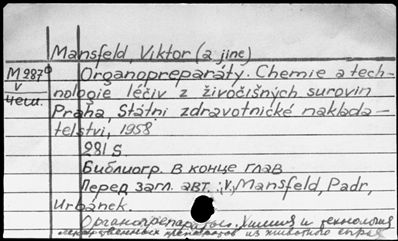 Mansfeld, Viktor (a jine)
M 287
v
чеш.
Organopreparáty. Chemie a tech-
nologie léčiv z živočišných surovin
Praha, Státni zdravotnické naklada-
telstvi, 1958
281 S
Библиогр. в конце глав
Перед загл. авт.: V. Mansfeld, Padr,
Urbánek.
Органопрепараты. Химия и технология
лекарственных препаратов из животного сырья